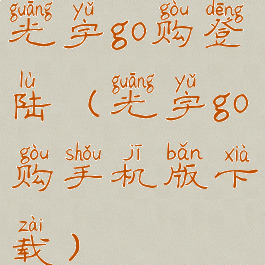 guāng yǔ gòu dēng
光宇go购登
lù guāng yǔ
陆(光宇go
gòu shǒu jī bǎn xià
购手机版下
zài
载)